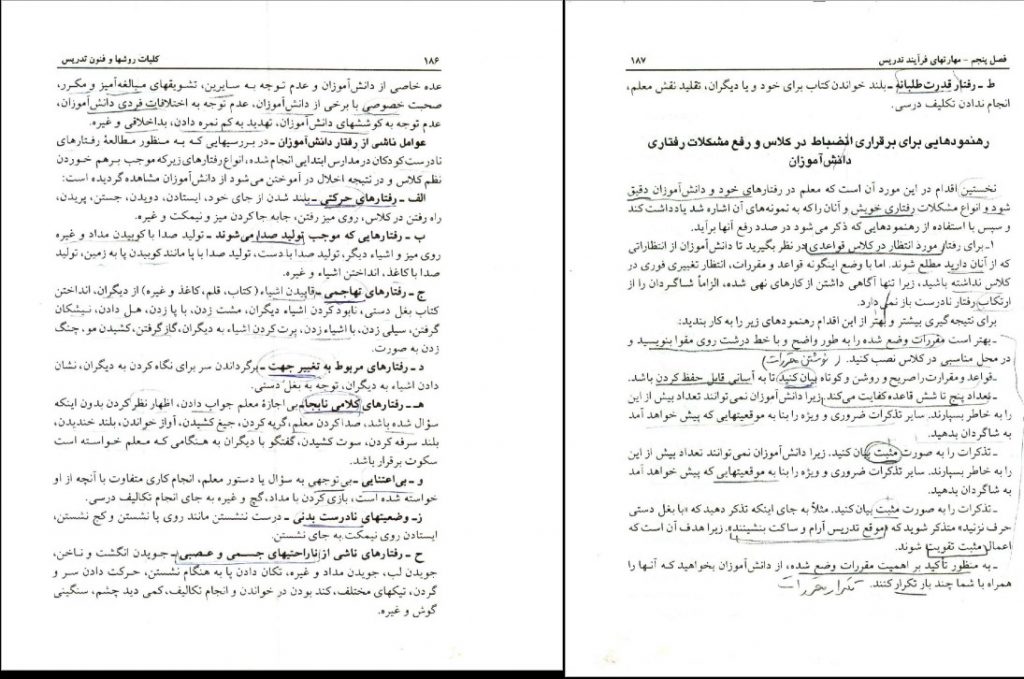 ۱۸۶
کلیات روشها و فنون تدریس
عده خاصی از دانش‌آموزان و عدم توجه به سایرین، تشویقهای مبالغه‌آمیز و مکرر،
صحبت خصوصی با برخی از دانش‌آموزان، عدم توجه به اختلافات فردی دانش‌آموزان،
عدم توجه به کوششهای دانش‌آموزان، تهدید به کم نمره دادن، بداخلاقی و غیره.
عوامل ناشی از رفتار دانش‌آموزان ـ در بررسیهایی که به منظور مطالعهٔ رفتارهای
نادرست کودکان در مدارس ابتدایی انجام شده، انواع رفتارهای زیر که موجب برهم خوردن
نظم کلاس و در نتیجه اخلال در آموختن می‌شود از دانش‌آموزان مشاهده گردیده است:
الف ـ رفتارهای حرکتی ـ بلند شدن از جای خود، ایستادن، دویدن، جستن، پریدن،
راه رفتن در کلاس، روی میز رفتن، جابه جا کردن میز و نیمکت و غیره.
ب ـ رفتارهایی که موجب تولید صدا می‌شوند ـ تولید صدا با کوبیدن مداد و غیره
روی میز و اشیاء دیگر، تولید صدا با دست، تولید صدا با پا مانند کوبیدن پا به زمین، تولید
صدا با کاغذ، انداختن اشیاء و غیره.
ج ـ رفتارهای تهاجمی ـ قاپیدن اشیاء (کتاب، قلم، کاغذ و غیره) از دیگران، انداختن
کتاب بغل دستی، نابود کردن اشیاء دیگران، مشت زدن، با پا زدن، هل دادن، نیشگان
گرفتن، سیلی زدن، با اشیاء زدن، پرت کردن اشیاء به دیگران، گاز گرفتن، کشیدن مو، چنگ
زدن به صورت.
د ـ رفتارهای مربوط به تغییر جهت ـ برگرداندن سر برای نگاه کردن به دیگران، نشان
دادن اشیاء به دیگران، توجه به بغل دستی.
هـ ـ رفتارهای کلامی نابجا ـ بی اجازهٔ معلم جواب دادن، اظهار نظر کردن بدون اینکه
سؤال شده باشد، صدا کردن معلم، گریه کردن، جیغ کشیدن، آواز خواندن، بلند خندیدن،
بلند سرفه کردن، سوت کشیدن، گفتگو با دیگران به هنگامی که معلم خواسته است
سکوت برقرار باشد.
و ـ بی‌اعتنایی ـ بی‌توجهی به سؤال یا دستور معلم، انجام کاری متفاوت با آنچه از او
خواسته شده است، بازی کردن با مداد، گچ و غیره به جای انجام تکالیف درسی.
ز ـ وضعیتهای نادرست بدنی ـ درست ننشستن مانند روی پا نشستن و کج نشستن،
ایستادن روی نیمکت به جای نشستن.
ح ـ رفتارهای ناشی از ناراحتیهای جسمی و عصبی ـ جویدن انگشت و ناخن،
جویدن لب، جویدن مداد و غیره، تکان دادن پا به هنگام نشستن، حرکت دادن سر و
گردن، تیکهای مختلف، کند بودن در خواندن و انجام تکالیف، کمی دید چشم، سنگینی
گوش و غیره.
فصل پنجم - مهارتهای فرآیند تدریس
۱۸۷
ط ـ رفتار قدرت‌طلبانه ـ بلند خواندن کتاب برای خود و یا دیگران، تقلید نقش معلم،
انجام ندادن تکلیف درسی.
رهنمودهایی برای برقراری انضباط در کلاس و رفع مشکلات رفتاری
دانش‌آموزان
نخستین اقدام در این مورد آن است که معلم در رفتارهای خود و دانش‌آموزان دقیق
شود و انواع مشکلات رفتاری خویش و آنان را که به نمونه‌های آن اشاره شد یادداشت کند
و سپس با استفاده از رهنمودهایی که ذکر می‌شود در صدد رفع آنها برآید.
۱ـ برای رفتار مورد انتظار در کلاس قواعدی در نظر بگیرید تا دانش‌آموزان از انتظاراتی
که از آنان دارید مطلع شوند. اما با وضع اینگونه قواعد و مقررات، انتظار تغییری فوری در
کلاس نداشته باشید، زیرا تنها آگاهی داشتن از کارهای نهی شده، الزاماً شاگردان را از
ارتکاب رفتار نادرست باز نمی‌دارد.
برای نتیجه‌گیری بیشتر و بهتر از این اقدام رهنمودهای زیر را به کار بندید:
ـ بهتر است مقررات وضع شده را به طور واضح و با خط درشت روی مقوا بنویسید و
در محل مناسبی در کلاس نصب کنید. (نوشتن مقررات)
ـ قواعد و مقررات را صریح و روشن و کوتاه بیان کنید تا به آسانی قابل حفظ کردن باشد.
ـ تعداد پنج تا شش قاعده کفایت می‌کند. زیرا دانش‌آموزان نمی‌توانند تعداد بیش از این
را به خاطر بسپارند. سایر تذکرات ضروری و ویژه را بنا به موقعیتهایی که پیش خواهد آمد
به شاگردان بدهید.
ـ تذکرات را به صورت مثبت بیان کنید. زیرا دانش‌آموزان نمی‌توانند تعداد بیش از این
را به خاطر بسپارند. سایر تذکرات ضروری و ویژه را بنا به موقعیتهایی که پیش خواهد آمد
به شاگردان بدهید.
ـ تذکرات را به صورت مثبت بیان کنید. مثلاً به جای اینکه تذکر دهید که «با بغل دستی
حرف نزنید» متذکر شوید که «موقع تدریس آرام و ساکت بنشینند». زیرا هدف آن است که
اعمال مثبت تقویت شوند.
ـ به منظور تأکید بر اهمیت مقررات وضع شده، از دانش‌آموزان بخواهید که آنها را
همراه با شما چند بار تکرار کنند. تکرار مقررات